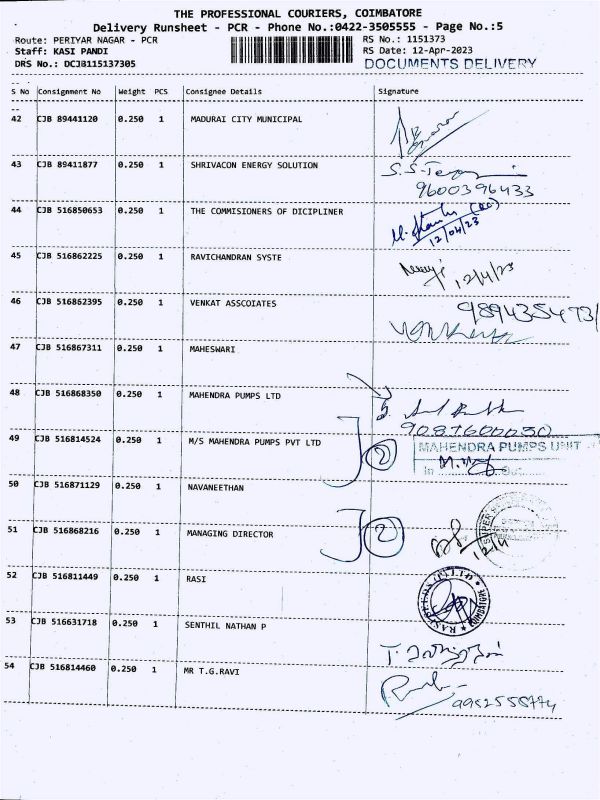 THE PROFESSIONAL COURIERS, COIMBATORE
Delivery Runsheet - PCR - Phone No.:0422-3505555 - Page No.:5
Route: PERIYAR NAGAR - PCR
RS No.: 1151373
Staff: KASI PANDI
RS Date: 12-Apr-2023
DRS No.: DCJB115137305
DOCUMENTS DELIVERY
S No Consignment No Weight PCS Consignee Details Signature
42 CJB 89441120 0.250 1 MADURAI CITY MUNICIPAL
43 CJB 89411877 0.250 1 SHRIVACON ENERGY SOLUTION
9600396433
44 CJB 516850653 0.250 1 THE COMMISIONERS OF DICIPLINER
12/04/23
45 CJB 516862225 0.250 1 RAVICHANDRAN SYSTE
12/4/23
46 CJB 516862395 0.250 1 VENKAT ASSCOIATES
9894354731
47 CJB 516867311 0.250 1 MAHESWARI
48 CJB 516868350 0.250 1 MAHENDRA PUMPS LTD
9087600030
49 CJB 516814524 0.250 1 M/S MAHENDRA PUMPS PVT LTD
2
MAHENDRA PUMPS UNIT
In Out
50 CJB 516871129 0.250 1 NAVANEETHAN
51 CJB 516868216 0.250 1 MANAGING DIRECTOR
2
12/4
52 CJB 516811449 0.250 1 RASI
53 CJB 516631718 0.250 1 SENTHIL NATHAN P
54 CJB 516814460 0.250 1 MR T.G.RAVI